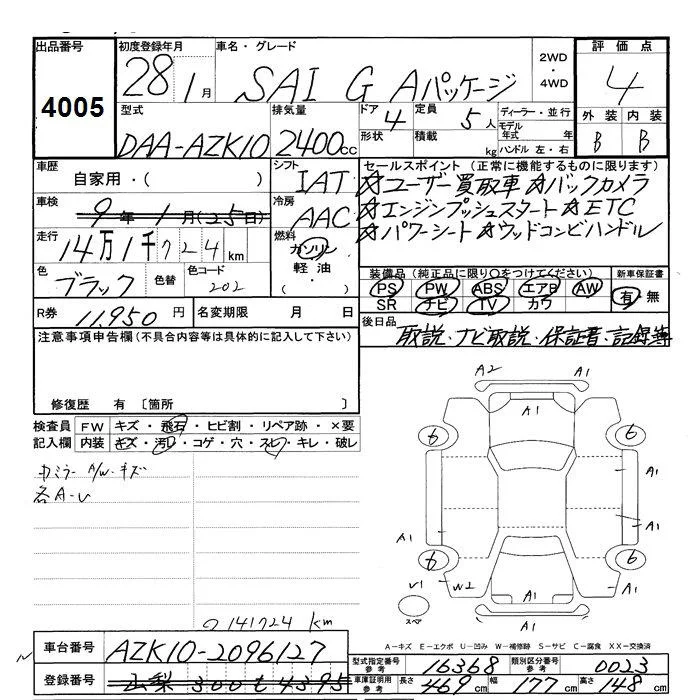 出品番号 初度登録年月 車名・グレード 2WD・4WD 評価点
4005 28 1月 SAI G Aパッケージ 4
型式 排気量 ドア 定員 ディーラー・並行 外装 内装
DAA-AZK10 2400cc 4 5人 モデル年式 年 B B
形状 積載 kg ハンドル 左・右
車歴 シフト セールスポイント (正常に機能するものに限ります)
自家用・( ) IAT ☆ユーザー買取車 ☆バックカメラ
車検 冷房 ☆エンジンプッシュスタート ☆ETC
9年1月(25日) AAC ☆パワーシート ☆ウッドコンビハンドル
走行 燃料
14万1千724km ガソリン
軽油・( )
色 色替 色コード 装備品 (純正品に限り○をつけてください) 新車保証書
ブラック 202 PS PW ABS エアB AW 有・無
SR ナビ TV カワ
R券 11,950円 名変期限 月 日
後日品 取説・ナビ取説・保証書・記録簿
注意事項申告欄 (不具合内容等は具体的に記入して下さい)
修復歴 有 [箇所 ]
検査員記入欄 FW キズ・飛石・ヒビ割・リペア跡・×要
内装 キズ・汚れ・コゲ・穴・スレ・キレ・破レ
A2 A1
A1
6 6
カミラー A/W・キズ
各A-U
A1
A1
A1 A1
6 6
V1 W2 A1 A1
スペア
A1
141724 km
A-キズ E-エクボ U-凹み W-補修跡 S-サビ C-腐食 XX-交換済
車台番号 AZK10-2096127
型式指定番号 参考 16368 類別区分番号 参考 0023
登録番号 山梨 300 も 4395
車庫証明用 参考 長さ 469cm 幅 177cm 高さ 148cm